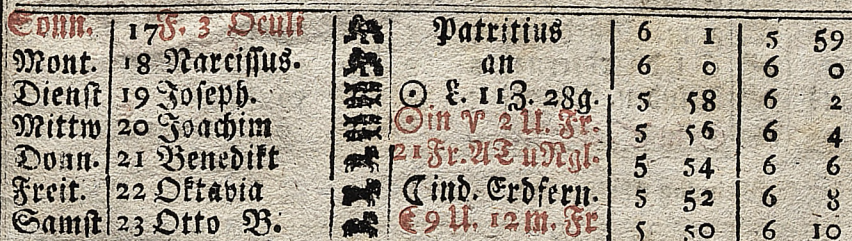 Sonn. 17 F. 3 Oculi Patritius 6 1 5 59
Mont. 18 Narcissus. an 6 0 6 0
Dienst 19 Joseph. ☉ L. 11Z. 28g. 5 58 6 2
Mittw 20 Joachim ☉in ♈ 2 U. Fr. 5 56 6 4
Donn. 21 Benedikt 21 Fr. AT uNgl. 5 54 6 6
Freit. 22 Oktavia ☾ ind. Erdfern. 5 52 6 8
Samst 23 Otto B. ☾ 9 U. 12 m. Fr 5 50 6 10